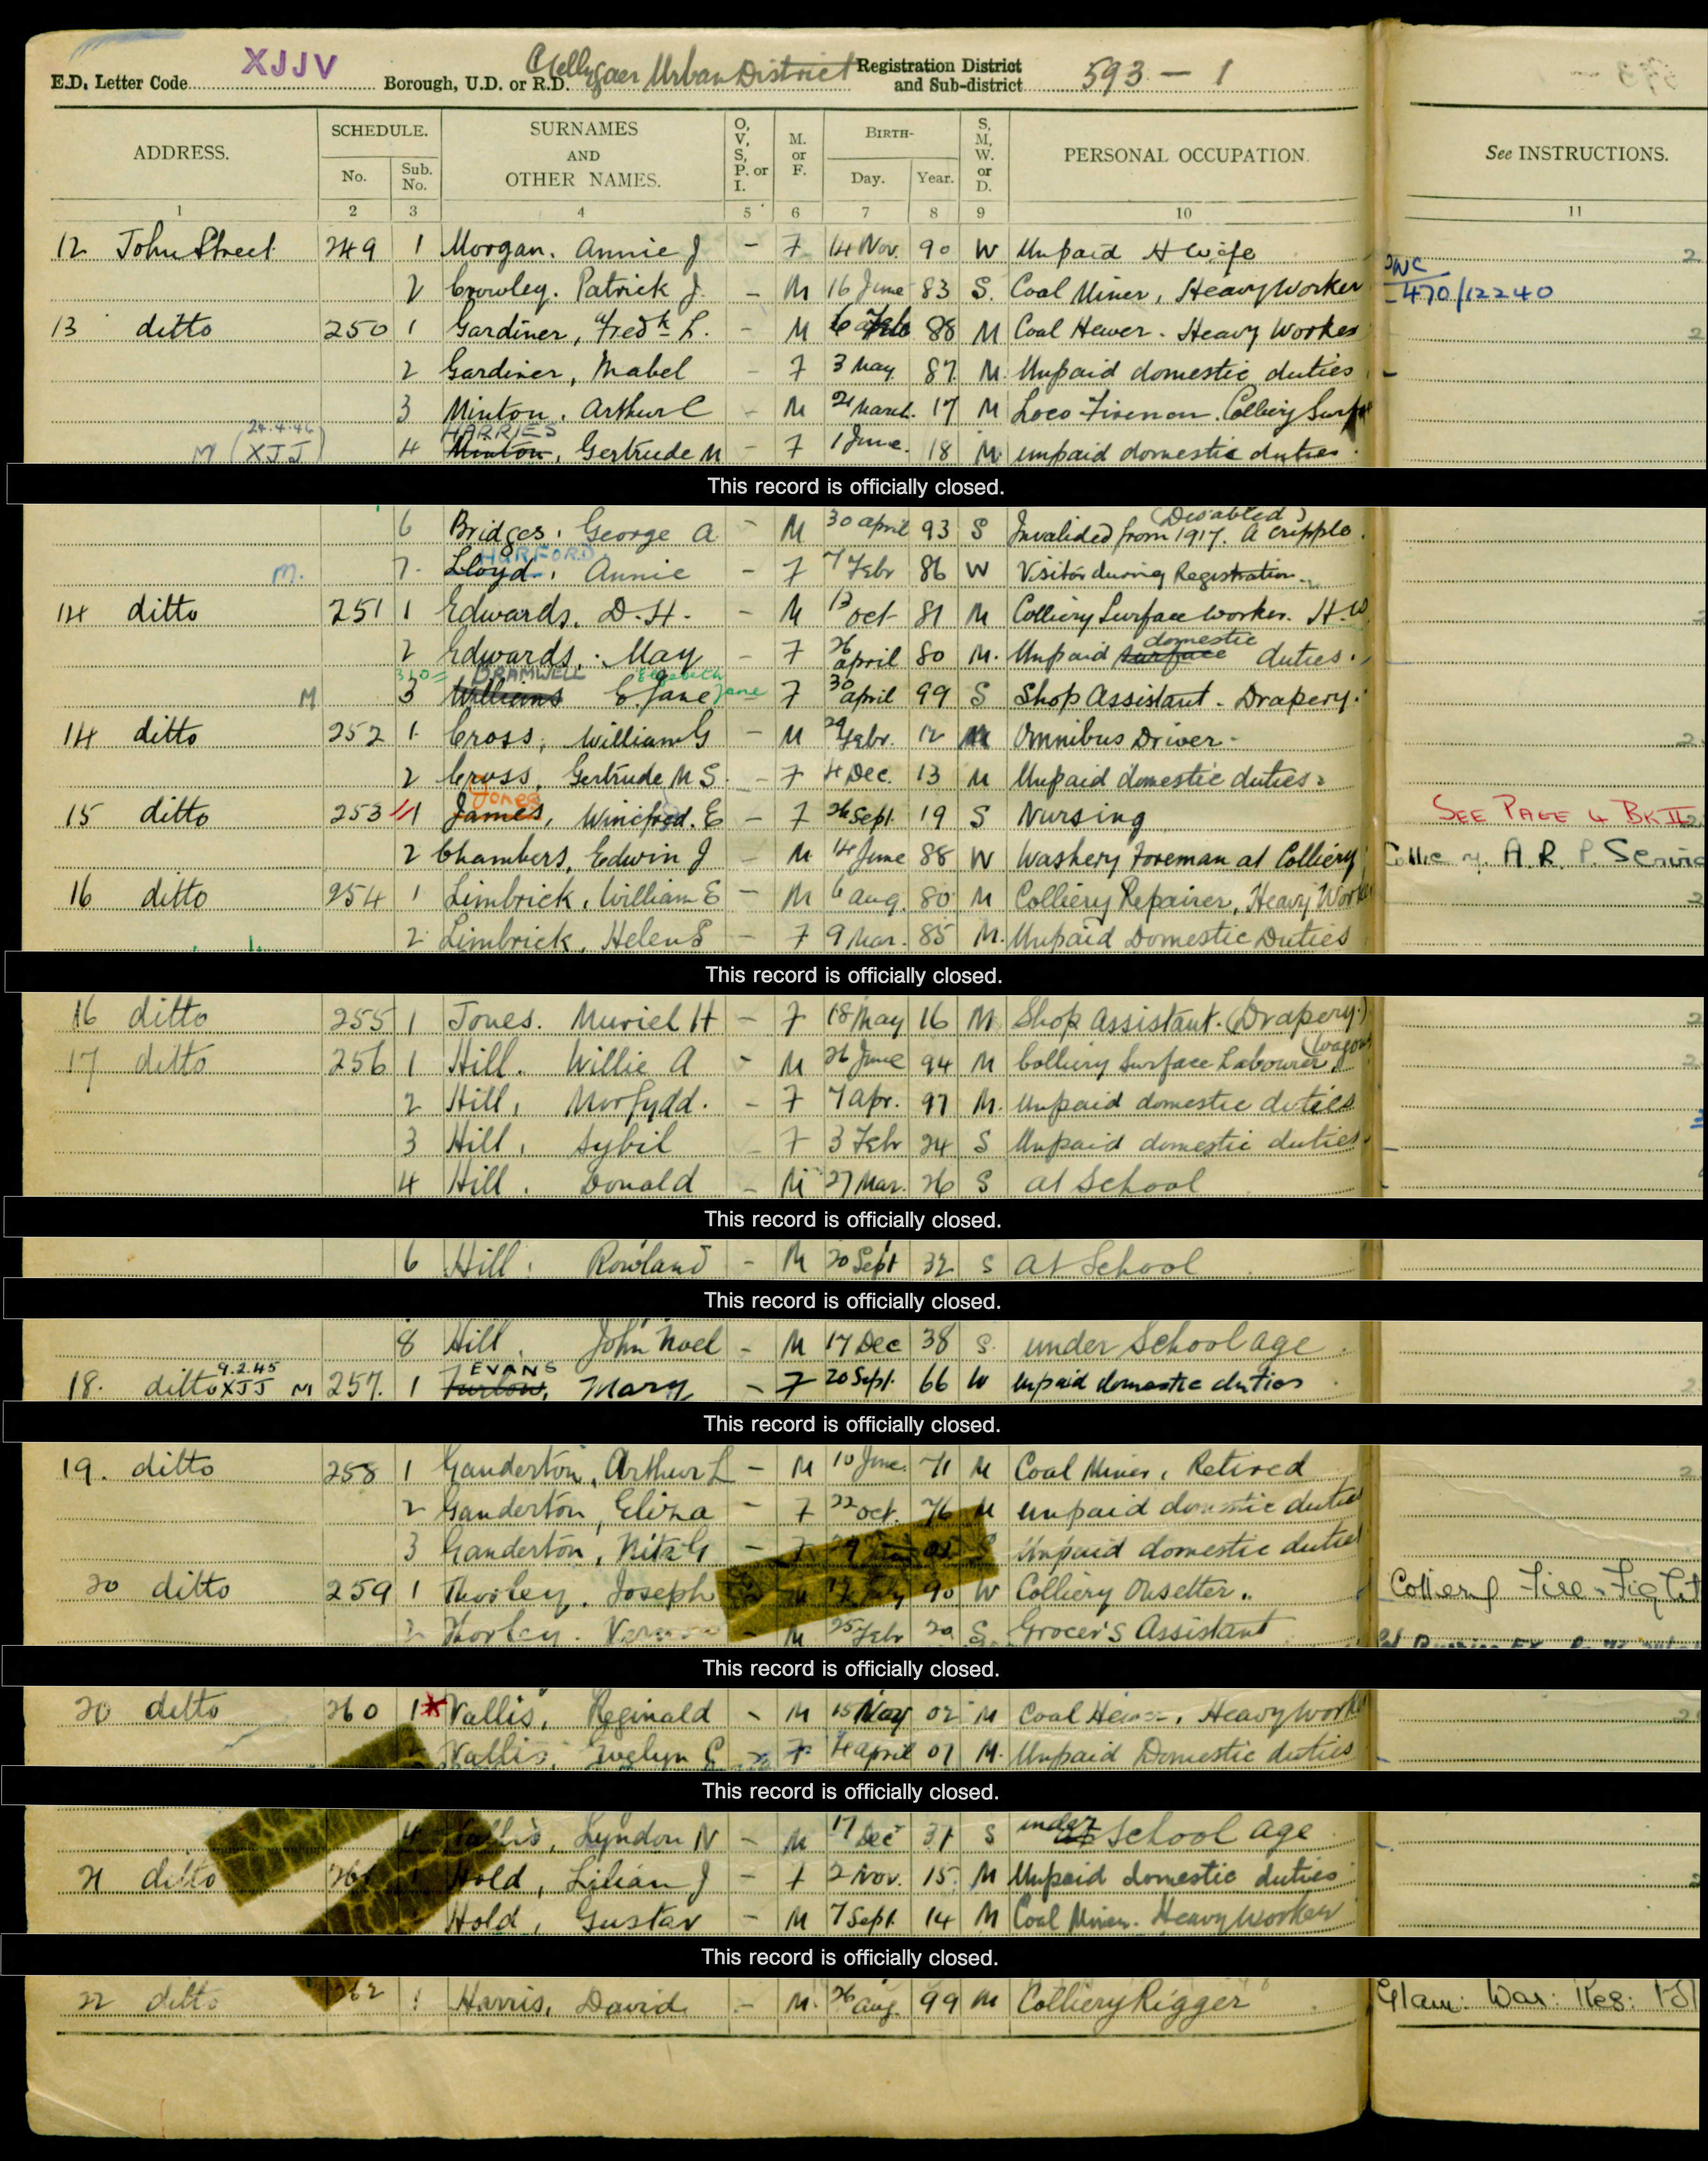 E.D. Letter Code XJJV Borough, U.D. or R.D. Gelligaer Urban District Registration District and Sub-district 593 - 1
ADDRESS. SCHEDULE. No. Sub. No. SURNAMES AND OTHER NAMES. O, V, S, P. or I. M. or F. BIRTH- Day. Year. S, M, W. or D. PERSONAL OCCUPATION. See INSTRUCTIONS.
1 2 3 4 5 6 7 8 9 10 11
12 John Street 249 1 Morgan. Annie J - F 14 Nov. 90 W Unpaid H Wife
2 Crowley. Patrick J. - M 16 June 83 S. Coal Miner, Heavy Worker 470/12240
13 ditto 250 1 Gardiner, Fredk L. - M 6 Feb 88 M Coal Hewer. Heavy Worker
2 Gardiner, Mabel - F 3 May 87 M. Unpaid domestic duties
3 Minton, Arthur C - M 21 March. 17 M Loco Fireman. Colliery Surface
24.4.46 HARRIES
M (XJJ) 4 Minton, Gertrude M - F 1 June. 18 M. unpaid domestic duties.
This record is officially closed.
6 Bridges, George A - M 30 april 93 S Invalided from 1917. A cripple. (Disabled)
HURFORD
M. 7. Lloyd, Annie - F 7 Febr 86 W Visitor during Registration.
14 ditto 251 1 Edwards, D. H. - M 13 Oct 81 M Colliery Surface Worker. H.W
2 Edwards, May - F 26 april 80 M. Unpaid surface domestic duties.
BRAMWELL Elizabeth
M 3 Williams E. Jane Jane F 30 april 99 S Shop Assistant - Drapery.
14 ditto 252 1. Cross, William G - M 29 Febr. 12 M Omnibus Driver
2 Cross, Gertrude M S. - F 4 Dec. 13 M Unpaid domestic duties
Jones
15 ditto 253 1 James, Winifred. E - F 26 Sept. 19 S Nursing SEE PAGE 4 BK II
2 Chambers, Edwin J - M 14 June 88 W Washery Foreman at Colliery A.R.P. Service
16 ditto 254 1 Limbrick, William E - M 6 aug. 80 M Colliery Repairer, Heavy Work
2 Limbrick, Helen S - F 9 Mar. 85 M. Unpaid Domestic Duties
This record is officially closed.
16 ditto 255 1 Jones. Muriel H - F 18 May 16 M Shop Assistant. (Drapery.)
17 ditto 256 1 Hill. Willie A - M 26 June 94 M Colliery Surface Labourer, (Wagon
2 Hill, Morfydd. - F 7 apr. 97 M. Unpaid domestic duties
3 Hill, Sybil F 3 Febr 24 S Unpaid domestic duties
4 Hill. Donald - M 27 Mar. 26 S at School
This record is officially closed.
6 Hill. Rowland - M 20 Sept 32 S at School
This record is officially closed.
8 Hill John Noel - M 17 Dec 38 S. under School age
9.2.45 EVANS
18. ditto XJJ M 257. 1 Furlow, Mary - F 20 Sept. 66 W unpaid domestic duties
This record is officially closed.
19. ditto 258 1 Ganderton, Arthur L - M 10 June. 71 M Coal Miner, Retired
2 Ganderton, Eliza - F 22 oct. 76 M unpaid domestic duties
3 Ganderton, - F Unpaid domestic duties
20 ditto 259 1 Thorley, Joseph M July 90 W Colliery Onsetter. Colliery Fire Fight
2 Thorley. - M 25 Febr 20 S. Grocer's Assistant
This record is officially closed.
20 ditto 260 1 * Vallis, Reginald - M 15 May 02 M Coal Hewer, Heavy Work
Vallis, Evelyn F 4 april 07 M. Unpaid Domestic duties
This record is officially closed.
4 Vallis, Lyndon N - M 17 Dec 37 S under at School age
21 ditto 261 1 Hold, Lilian J - F 2 Nov. 15 M Unpaid domestic duties
Hold, Gustav - M 7 Sept. 14 M Coal Miner. Heavy Worker
This record is officially closed.
22 ditto 262 1 Harris, David - M. 26 aug. 99 M Colliery Rigger Glam: War: Res: